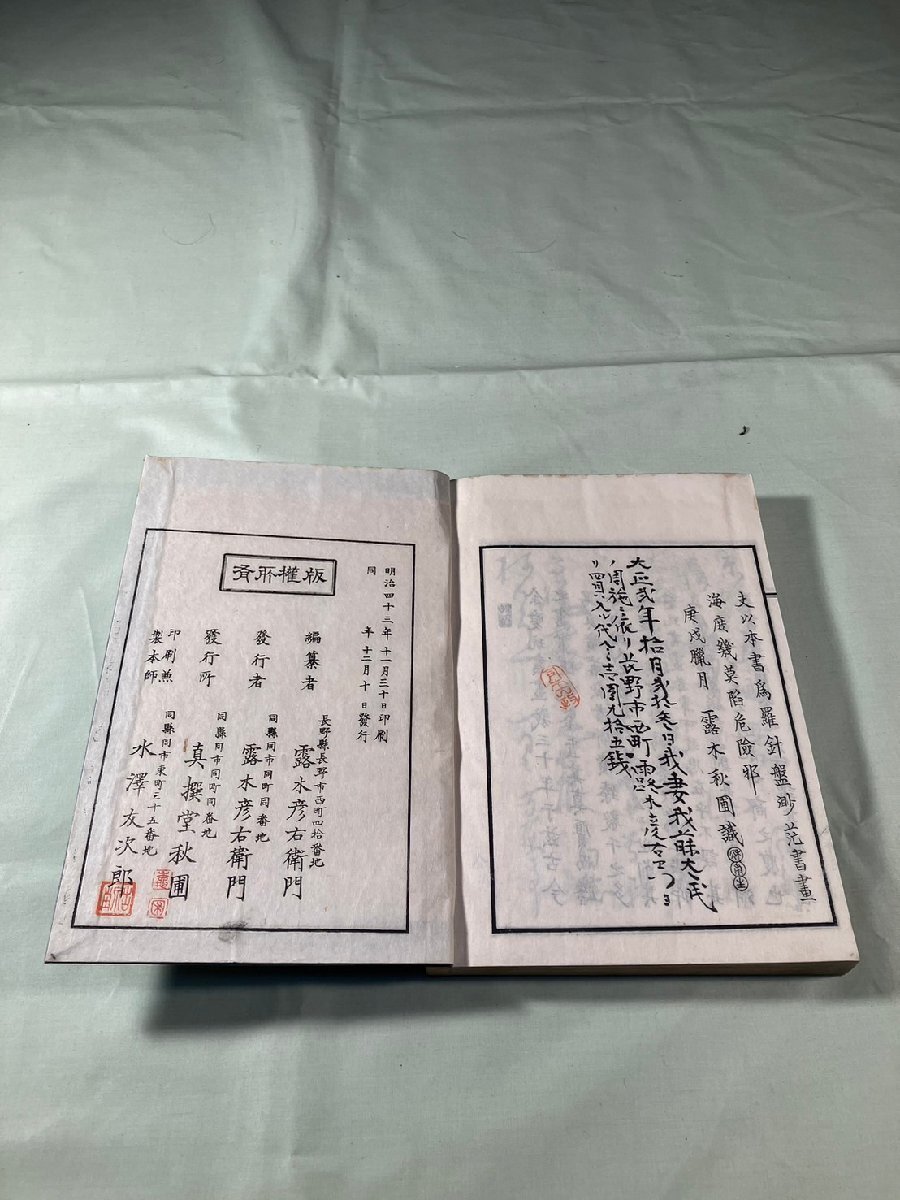 夫以本書爲羅針盤渺茫書畫
海庶幾莫陷危險邪
庚戌臘月 露木秋圃識
大正貳年拾月貳拾参日我妻我藤太氏
ノ周施ニ依リ長野市西町露木彦右エ門ヨ
版權所有
明治四十三年十一月三十日印刷
同 年十二月十日發行
編纂者 長野縣長野市西町四拾番地 露木彦右衛門
發行者 同縣同市同町同番地 露木彦右衛門
發行所 同縣同市同町同番地 真撰堂秋圃
印刷兼製本師 同縣同市東町三十五番地 水澤友次郎